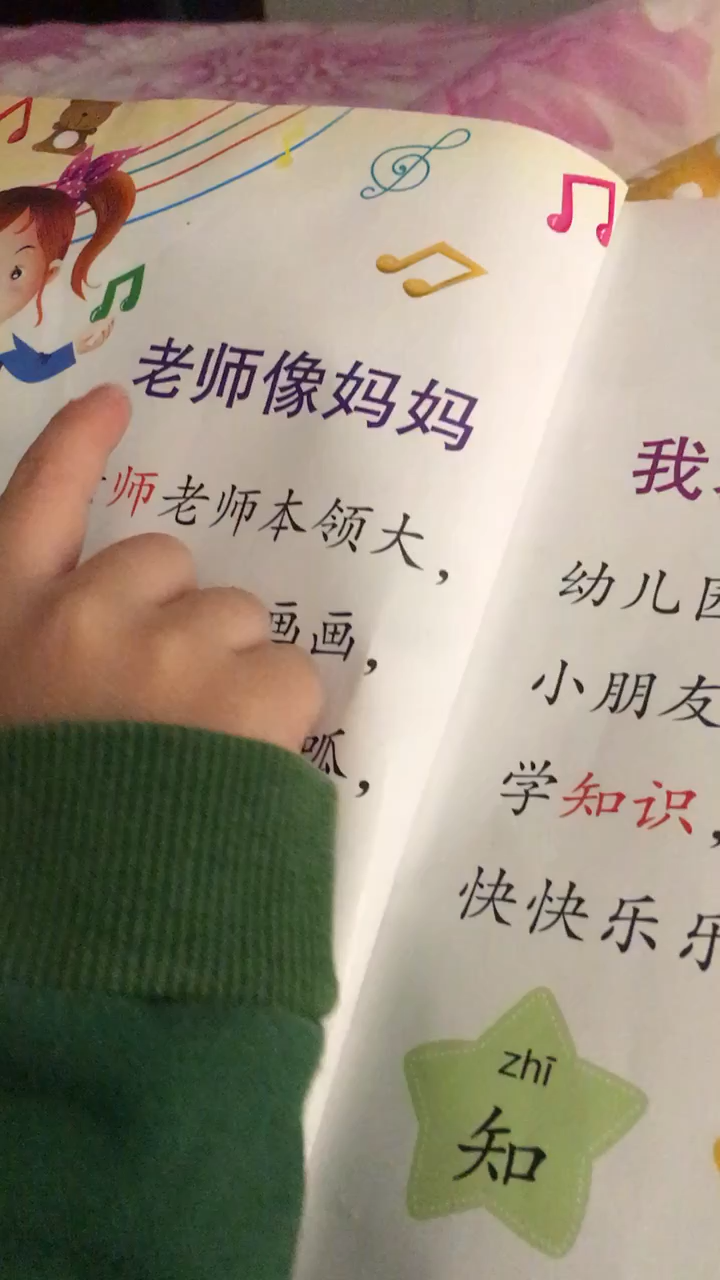 老师像妈妈
师老师本领大，
画画，
呱，
我
幼儿园
小朋友
学知识，
快快乐乐
zhī
知